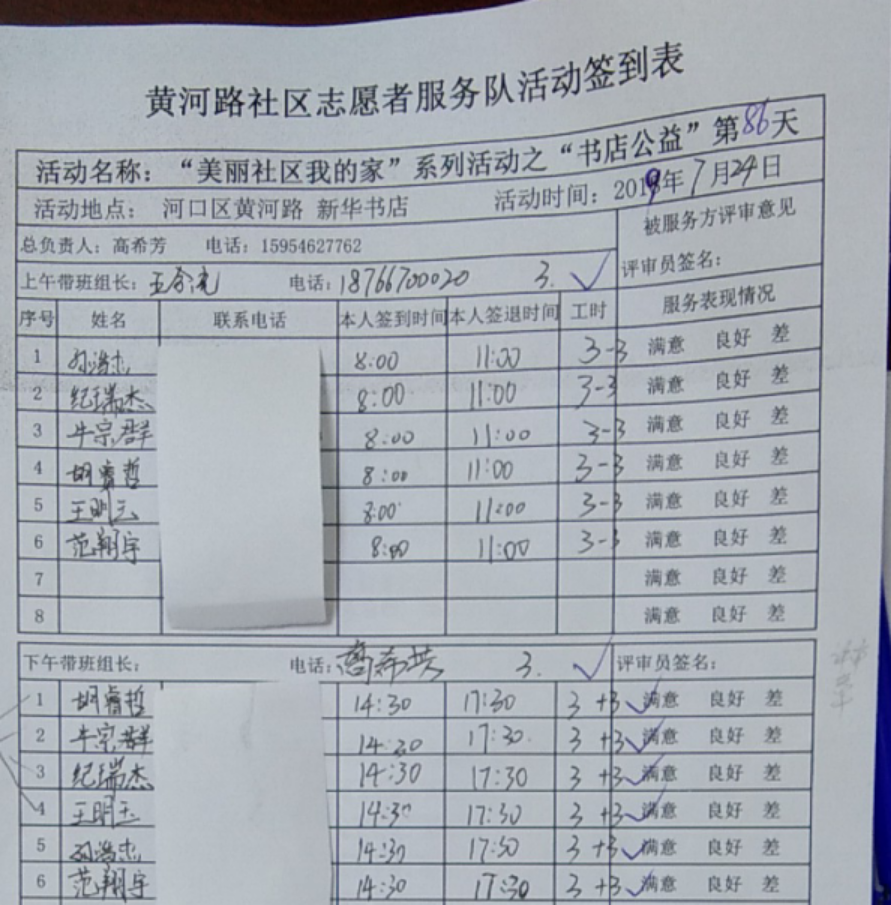 黄河路社区志愿者服务队活动签到表
活动名称：“美丽社区我的家”系列活动之“书店公益”第86天
活动地点： 河口区黄河路 新华书店 活动时间：2019年7月24日
被服务方评审意见
总负责人：高希芳 电话：15954627762
评审员签名：
上午带班组长： 电话：18766700020 3. ✓
序号 姓名 联系电话 本人签到时间 本人签退时间 工时 服务表现情况
1 孙浩杰 8:00 11:00 3-3 满意 良好 差
2 纪瑞杰 8:00 11:00 3-3 满意 良好 差
3 牛宗群 8:00 11:00 3-3 满意 良好 差
4 胡睿哲 8:00 11:00 3-3 满意 良好 差
5 王明玉 8:00 11:00 3-3 满意 良好 差
6 范翔宇 8:00 11:00 3-3 满意 良好 差
7 满意 良好 差
8 满意 良好 差
下午带班组长： 电话：高希芳 3. ✓ 评审员签名：
1 胡睿哲 14:30 17:30 3 +3 ✓ 满意 良好 差
2 牛宗群 14:30 17:30. 3 +3 ✓ 满意 良好 差
3 纪瑞杰 14:30 17:30 3 +3 ✓ 满意 良好 差
4 王明玉 14:30 17:30 3 +3 ✓ 满意 良好 差
5 孙浩杰 14:30 17:30 3 +3 ✓ 满意 良好 差
6 范翔宇 14:30 17:30 3 +3 ✓ 满意 良好 差